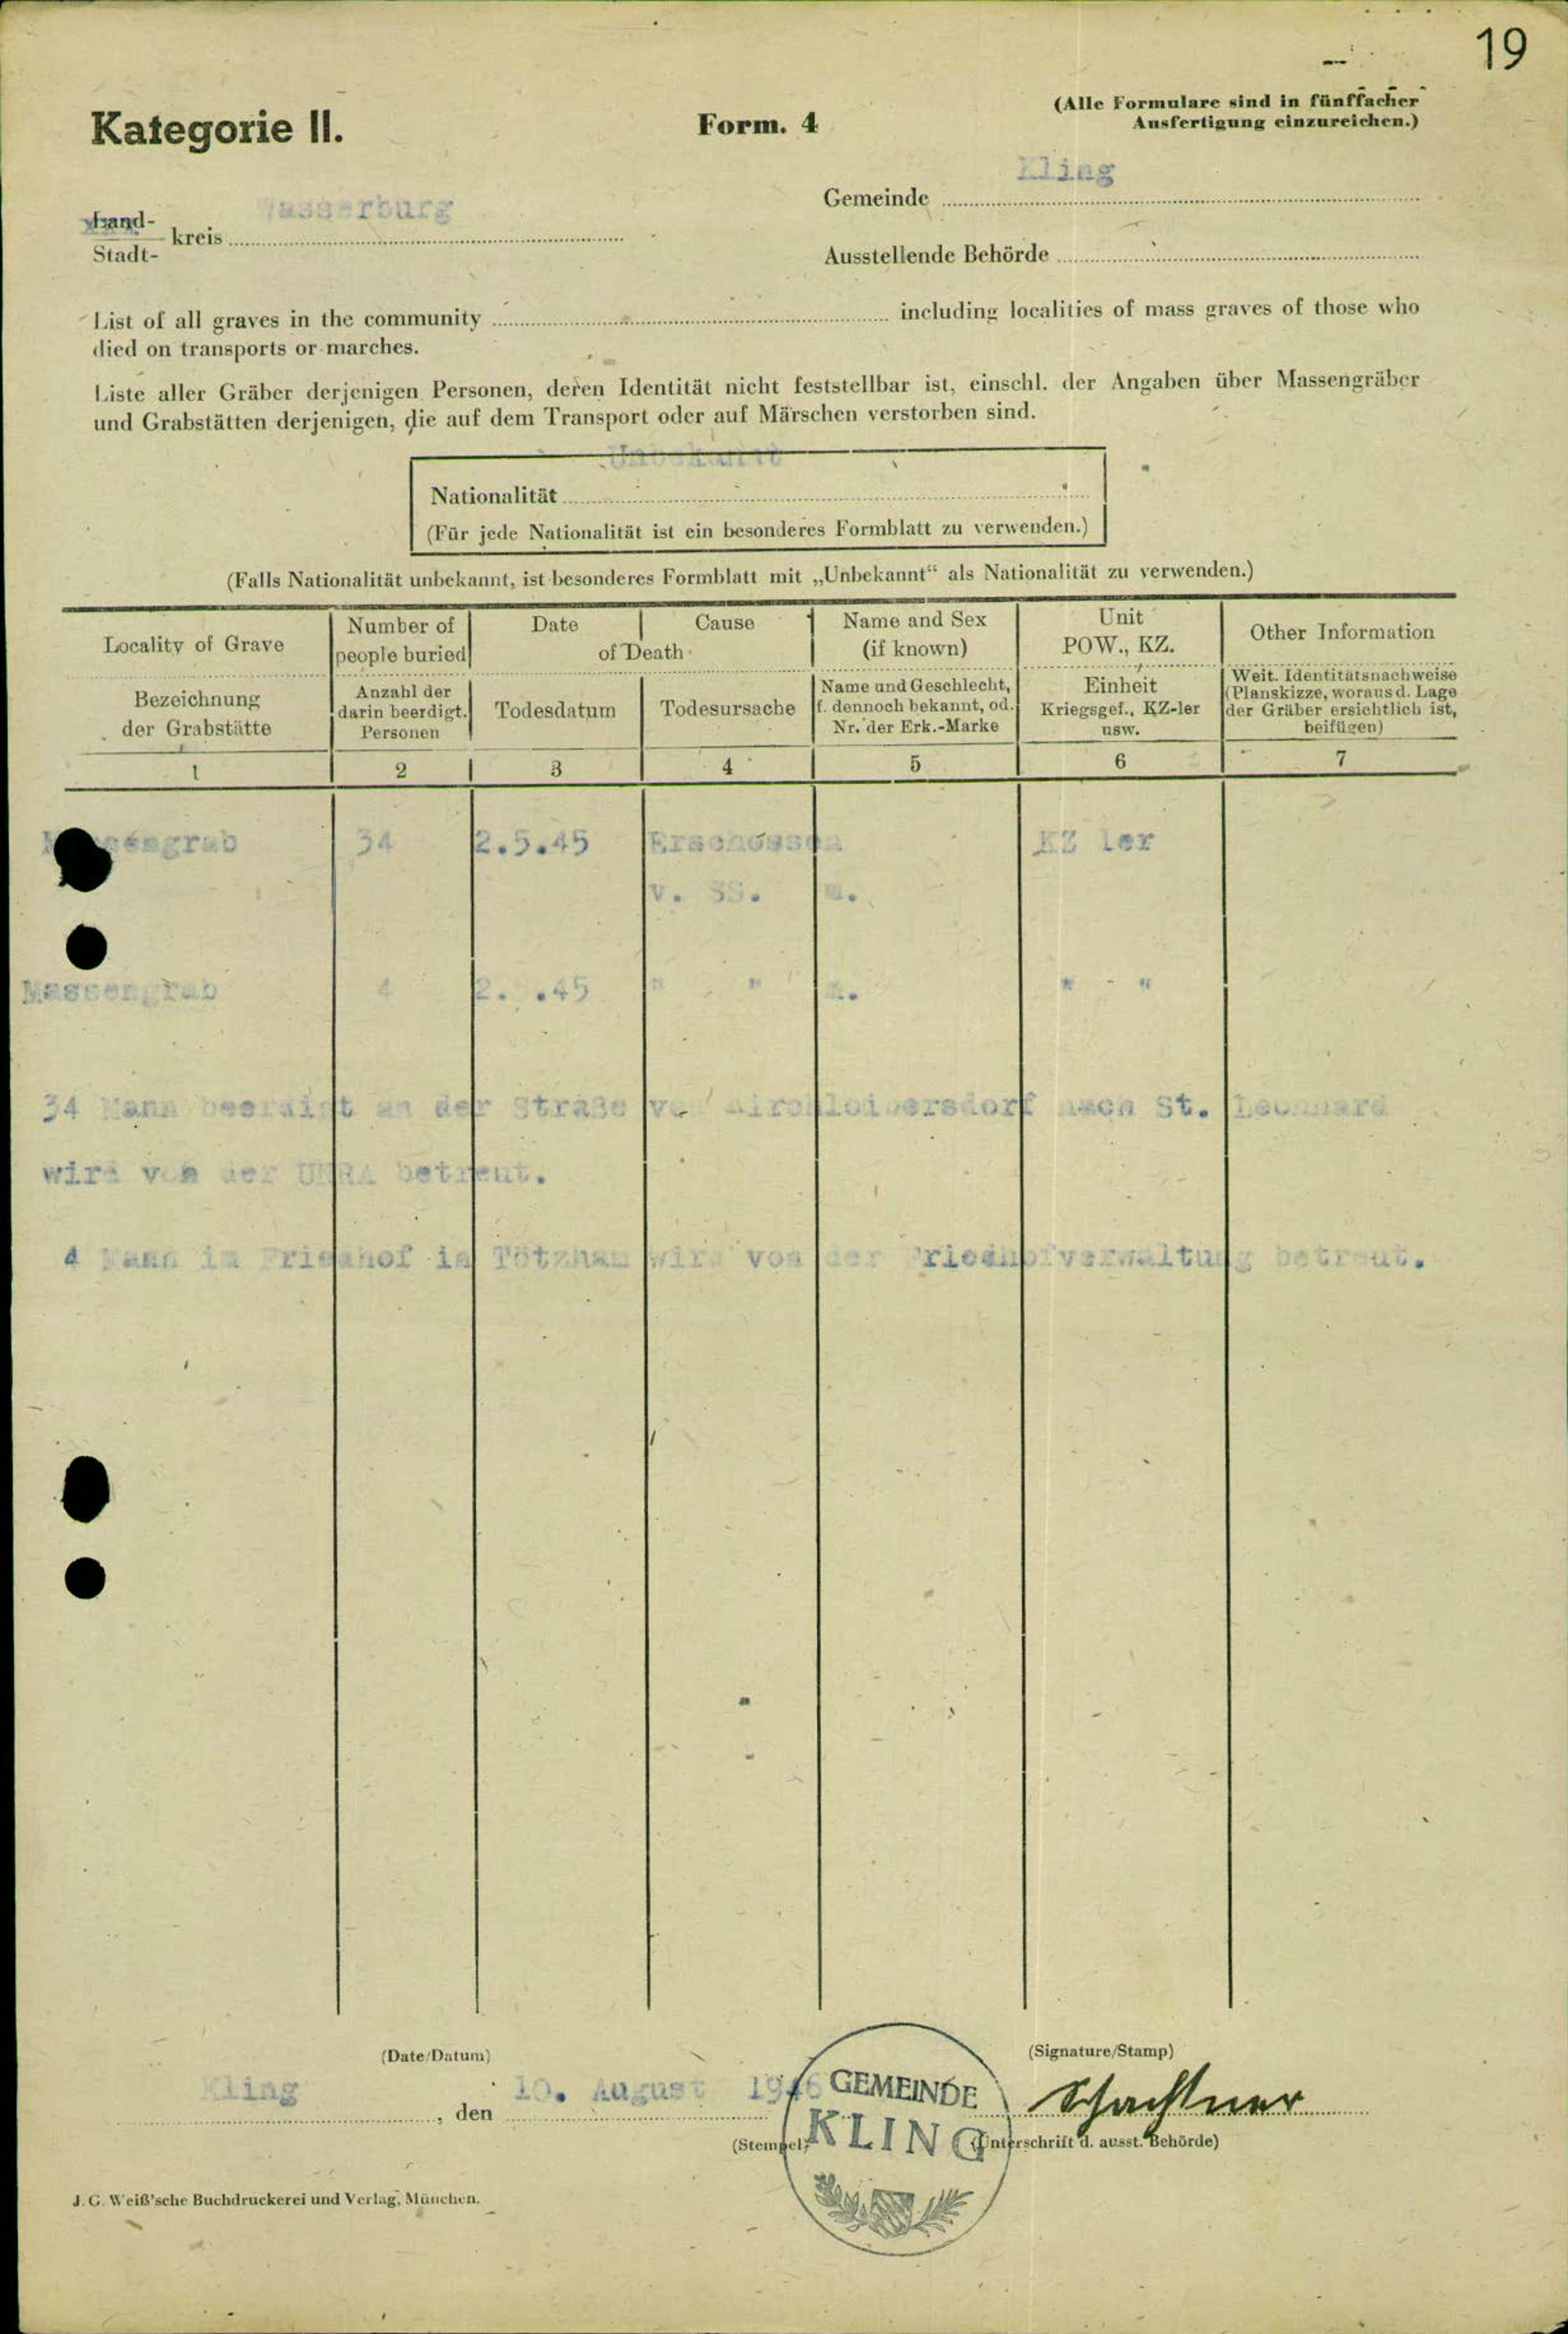 19
Kategorie II.
Form. 4
(Alle Formulare sind in fünffacher
Ausfertigung einzureichen.)
Land-
Stadt-
kreis Wasserburg
Gemeinde Kling
Ausstellende Behörde
List of all graves in the community including localities of mass graves of those who
died on transports or marches.
Liste aller Gräber derjenigen Personen, deren Identität nicht feststellbar ist, einschl. der Angaben über Massengräber
und Grabstätten derjenigen, die auf dem Transport oder auf Märschen verstorben sind.
Unbekannt
Nationalität
(Für jede Nationalität ist ein besonderes Formblatt zu verwenden.)
(Falls Nationalität unbekannt, ist besonderes Formblatt mit „Unbekannt“ als Nationalität zu verwenden.)
Locality of Grave
Bezeichnung
der Grabstätte
1
Number of
people buried
Anzahl der
darin beerdigt.
Personen
2
Date Cause
of Death
Todesdatum
3
Todesursache
4
Name and Sex
(if known)
Name und Geschlecht,
f. dennoch bekannt, od.
Nr. der Erk.-Marke
5
Unit
POW., KZ.
Einheit
Kriegsgef., KZ-ler
usw.
6
Other Information
Weit. Identitätsnachweise
(Planskizze, woraus d. Lage
der Gräber ersichtlich ist,
beifügen)
7
Massengrab 34 2.5.45 Erschossen KZ ler
v. SS. m.
Massengrab 4 2. .45 " " m. " - "
34 Mann beerdigt an der Straße von Kirchloibersdorf nach St. Leonhard
wird von der UNRA betreut.
4 Mann im Friedhof in Tötzham wird von der Friedhofverwaltung betreut.
(Date/Datum)
(Signature/Stamp)
Kling, den 10. August 1946
GEMEINDE
KLING
Schachner
(Stempel)
(Unterschrift d. ausst. Behörde)
J. G. Weiß'sche Buchdruckerei und Verlag, München.